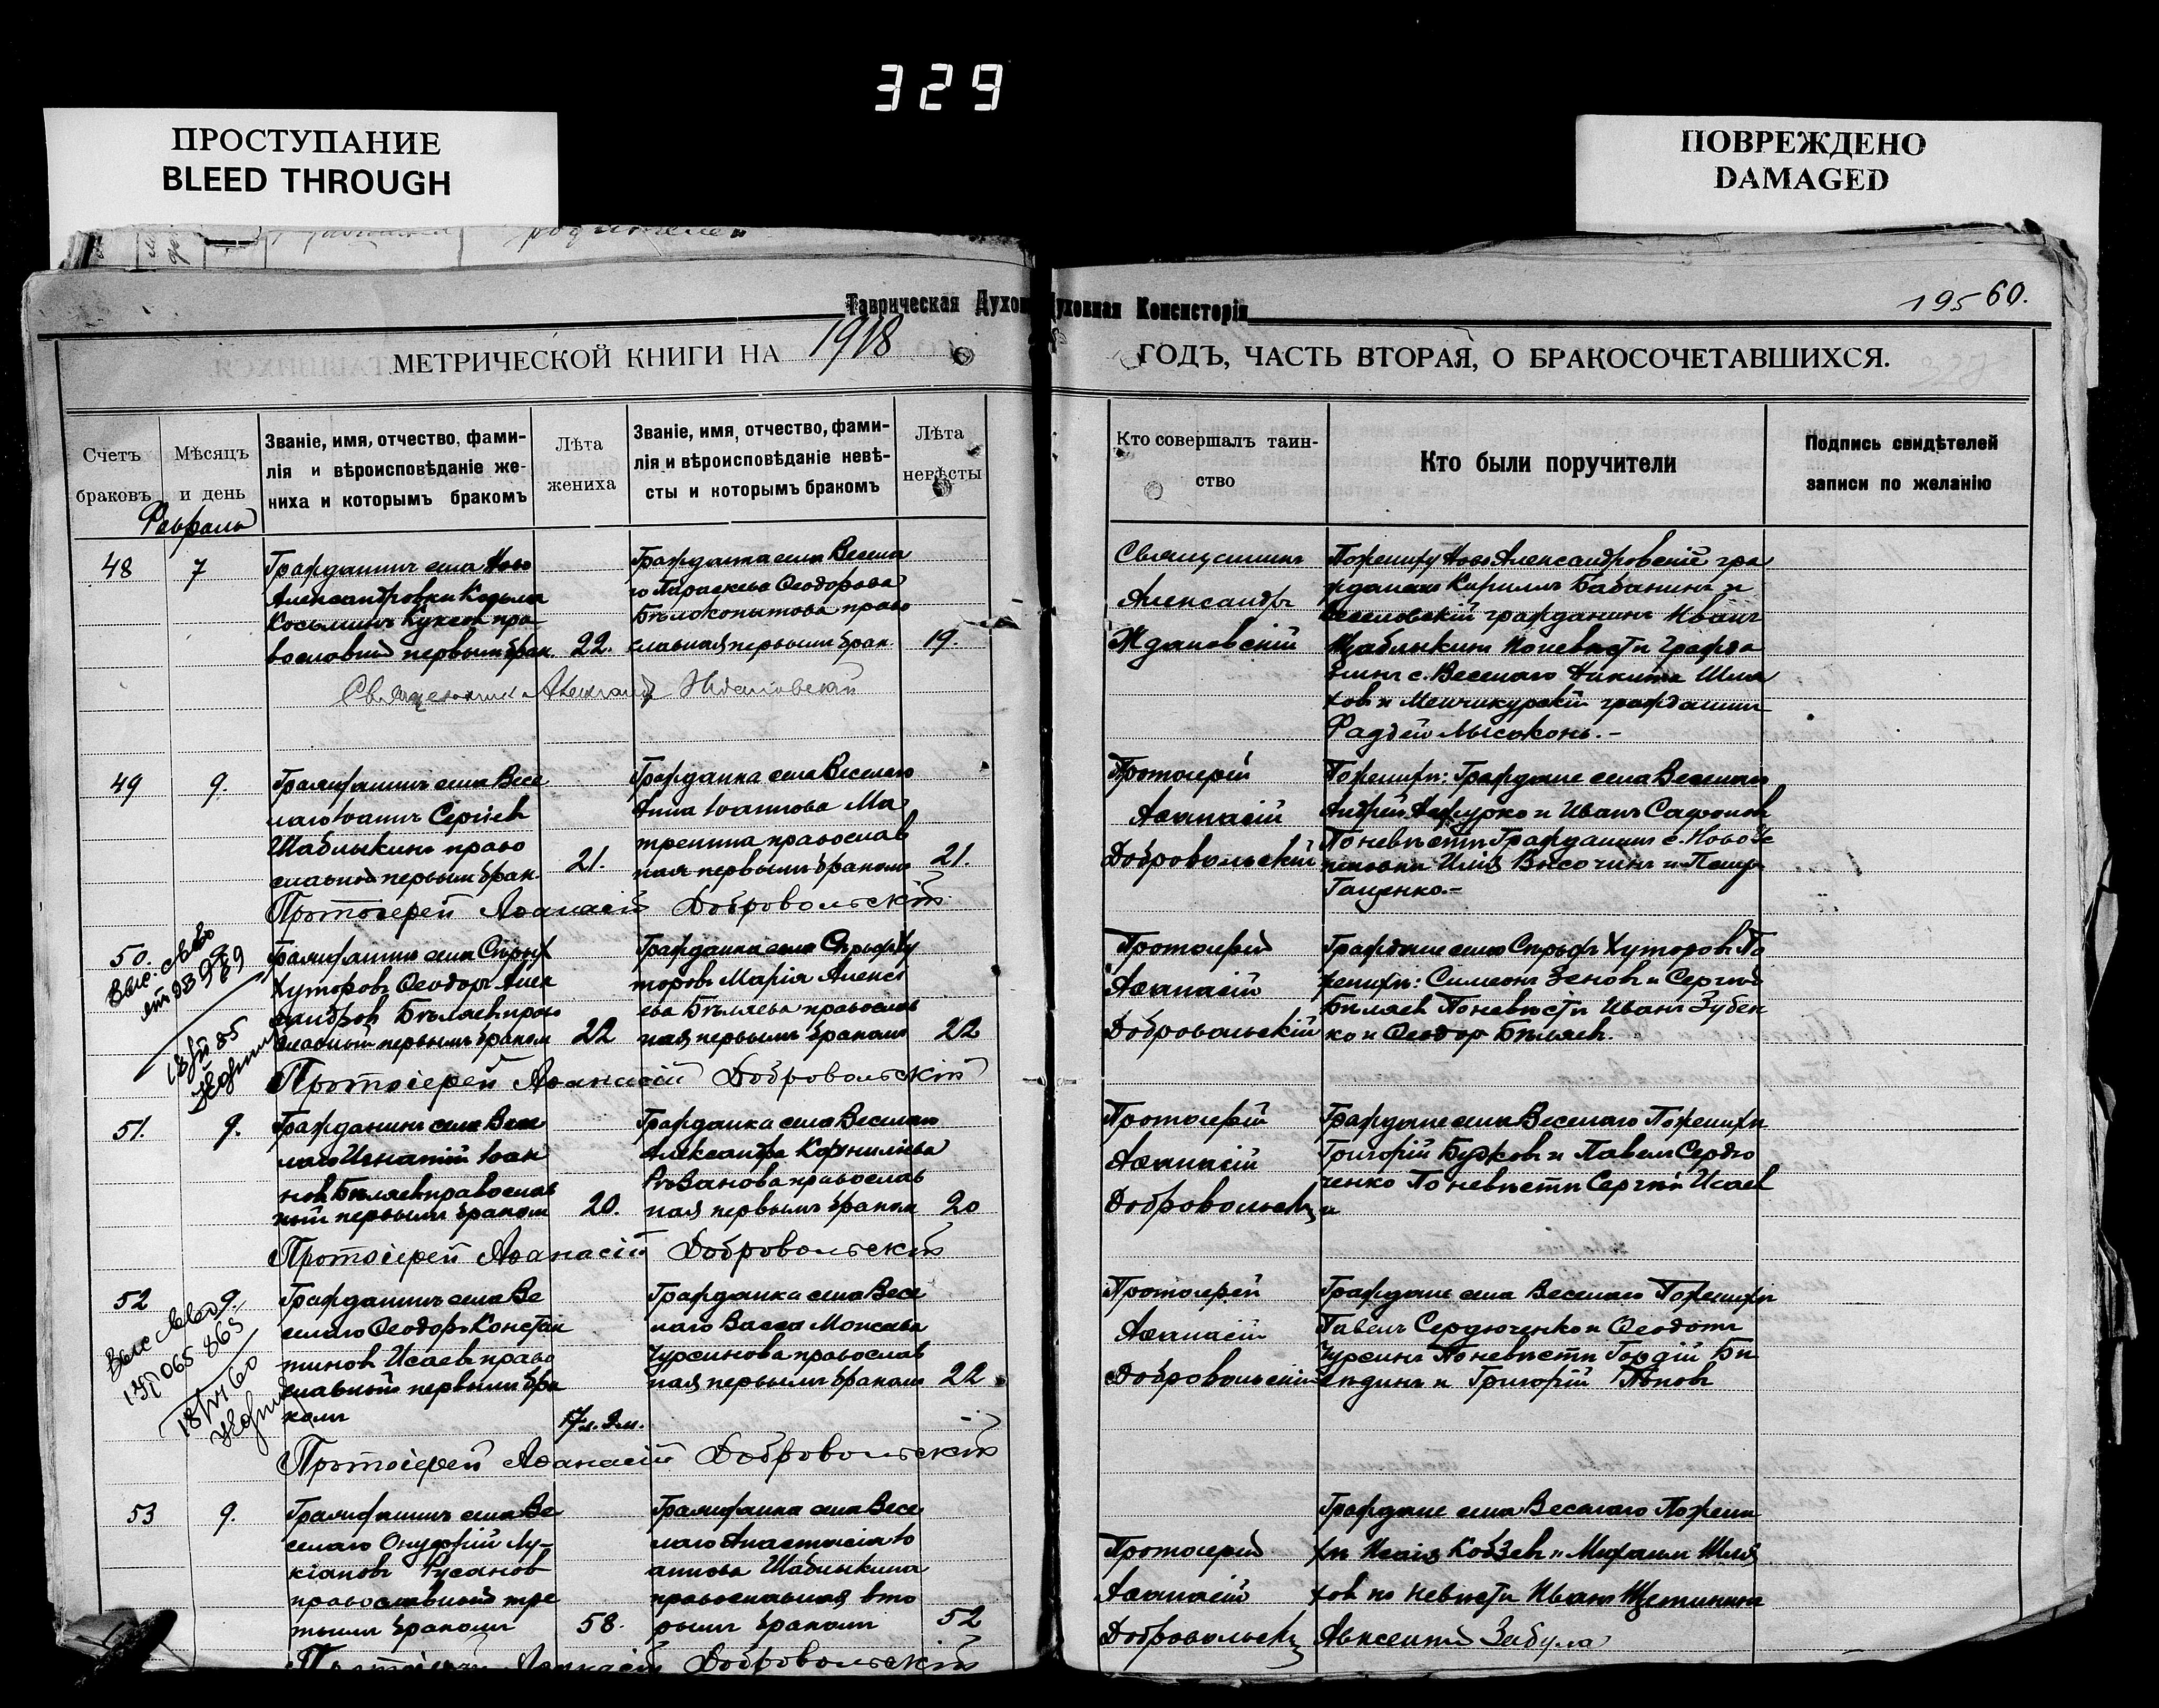 329
ПРОСТУПАНИЕ
BLEED THROUGH
ПОВРЕЖДЕНО
DAMAGED
Таврическая Духов
уховная Консисторія
195 60.
МЕТРИЧЕСКОЙ КНИГИ НА 1918
ГОДЪ, ЧАСТЬ ВТОРАЯ, О БРАКОСОЧЕТАВШИХСЯ.
Счетъ
браковъ
Мѣсяцъ
и день
Званіе, имя, отчество, фами-
лія и вѣроисповѣданіе же-
ниха и которымъ бракомъ
Лѣта
жениха
Званіе, имя, отчество, фами-
лія и вѣроисповѣданіе невѣ-
сты и которымъ бракомъ
Лѣта
невѣсты
Кто совершалъ таин-
ство
Кто были поручители
Подпись свидѣтелей
записи по желанію
Февраль
48
7
Гражданинъ села Ново
Александровки Козьма
Косьминъ Куксов пра
вославный первым брак.
22.
Гражданка села Весела
го Параскева Ѳеодорова
Бѣлокопытова право
славная первымъ брак.
19.
Священникъ
Александръ
Ждановскій
По жениху Ново Александровскіе гра
ждане Кириллъ Бабанинъ и
Веселовскій гражданинъ Иванъ
Шаблыкинъ По невѣстѣ гражда
нинъ с. Веселаго Никита Шля
ховъ и Менчикурскій гражданинъ
Фаддей Лысоконь.-
Священникъ Александръ Ждановскій
49
9.
Гражданинъ села Весе
лаго Іоаннъ Сергіевъ
Шаблыкинъ право
славный первым брак.
21.
Гражданка села Веселаго
Анна Іоаннова Ма
трепина православ
ная первымъ бракомъ
21.
Протоіерей
Аѳанасій
Добровольскій
По женихѣ: Граждане села Веселаго
Андрей и Иванъ Сафоновъ
По невѣстѣ Гражданинъ с. Ново
Илія Высочинъ и Петръ
Гаценко.-
Протоіерей Аѳанасій Добровольскій
50.
Гражданинъ села Сѣрыхъ
Хуторовъ Ѳеодоръ Алек
сандровъ Бѣляевъ право
славный первымъ бракомъ
22
Гражданка села Сѣрыхъ Ху
торовъ Марія Алексѣ
ева Бѣляева православ
ная первымъ бракомъ
22
Протоіерей
Аѳанасій
Добровольскій
Граждане села Сѣрыхъ Хуторовъ По
женихѣ: Симеонъ Зеновъ и Сергій
Бѣляев По невѣстѣ Иванъ Зубен
ко и Ѳеодор Бѣляевъ.
Протоіерей Аѳанасій Добровольскій
51.
9.
Гражданинъ села Весе
лаго Игнатій Іоан
новъ Бѣляевъ православ
ный первымъ бракомъ
20.
Гражданка села Веселаго
Александра Корниліева
Рѣзанова православ
ная первымъ бракомъ
20
Протоіерей
Аѳанасій
Добровольскій
Граждане села Веселаго По женихѣ
Григорій Будковъ и Павелъ Сердю
ченко По невѣстѣ Сергѣй Исаев
Протоіерей Аѳанасій Добровольскій
52
9.
Гражданинъ села Ве
селаго Ѳеодоръ Констан
тиновъ Исаевъ право
славный первымъ бра
комъ
17 л. 9 м.
Гражданка села Весе
лаго Васса Моисеева
Чурсинова православ
ная первымъ бракомъ
22.
Протоіерей
Аѳанасій
Добровольскій
Граждане села Веселаго По женихѣ
Павелъ Сердюченко и Ѳеодотъ
Чурсинъ По невѣстѣ Гордій Бѣ
и Григорій Поповъ
Протоіерей Аѳанасій Добровольскій
53
9.
Гражданинъ села Ве
селаго Онуфрій Лу-
кіановъ Русановъ
православный тре
тьимъ бракомъ
58.
Гражданка села Весе
лаго Анастасія Іо
аннова Шаблыкина
православная вто
рымъ бракомъ
52
Протоіерей
Аѳанасій
Добровольск
Граждане села Веселаго По жени
хѣ Исаія Кобзевъ и Михаилъ Шля
ховъ по невѣстѣ Иванъ Щетининъ
Авксентій Забула
Протоіерей Аѳанасій Добровольскій